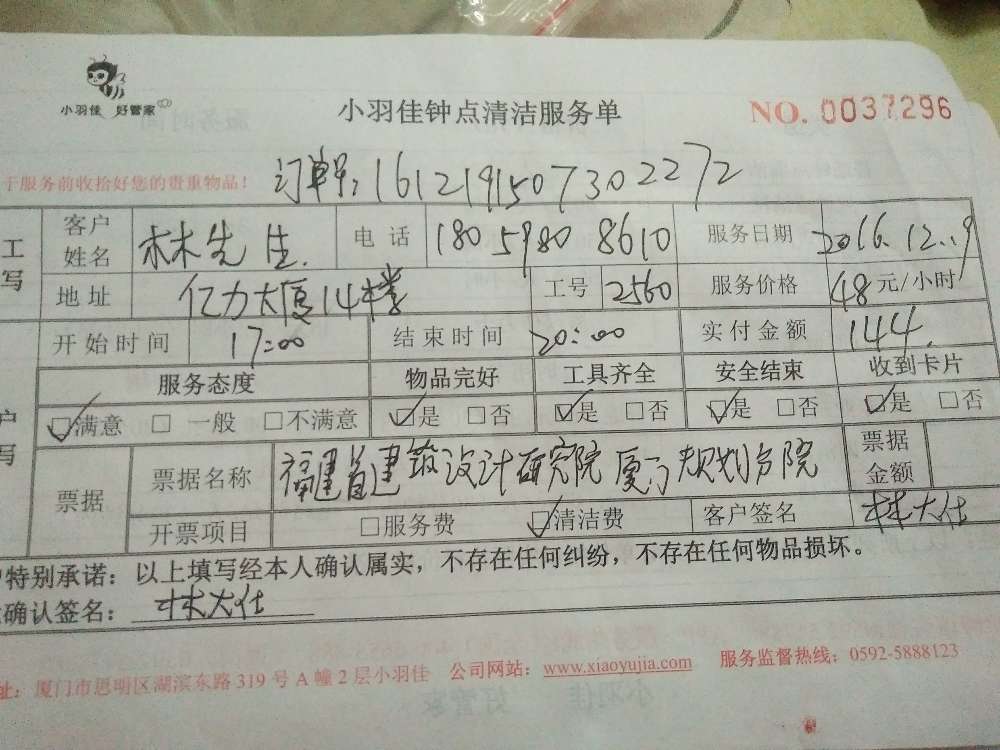 小羽佳 好管家
小羽佳钟点清洁服务单
NO. 0037296
于服务前收拾好您的贵重物品！
订单号：1612191507302272
工 写
客户姓名 林先生. 电话 180 5980 8610 服务日期 2016.12.19
地址 亿力大厦14楼 工号 2560 服务价格 48元/小时
开始时间 17:00 结束时间 20:00 实付金额 144.
服务态度 物品完好 工具齐全 安全结束 收到卡片
户 写
☑满意 □一般 □不满意 ☑是 □否 ☑是 □否 ☑是 □否 ☑是 □否
票据 票据名称 福建省建筑设计研究院厦门规划分院 票据金额
开票项目 □服务费 ☑清洁费 客户签名 林大仕
户特别承诺：以上填写经本人确认属实，不存在任何纠纷，不存在任何物品损坏。
确认签名：林大仕
址：厦门市思明区湖滨东路319号A幢2层小羽佳 公司网站：www.xiaoyujia.com 服务监督热线：0592-5888123